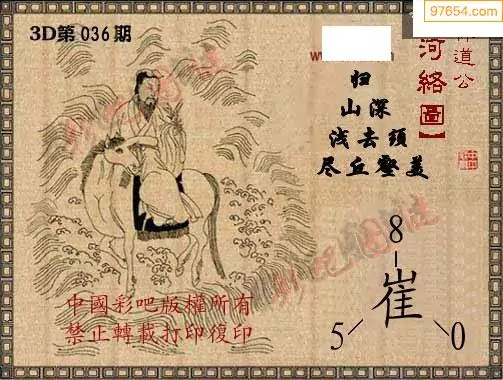 97654.com
3D第036期
道公
河络圖】
归
山深
浅去須
尽丘壑美
8
崔
5
0
彩吧图谜
中國彩吧版權所有
禁止轉載打印復印